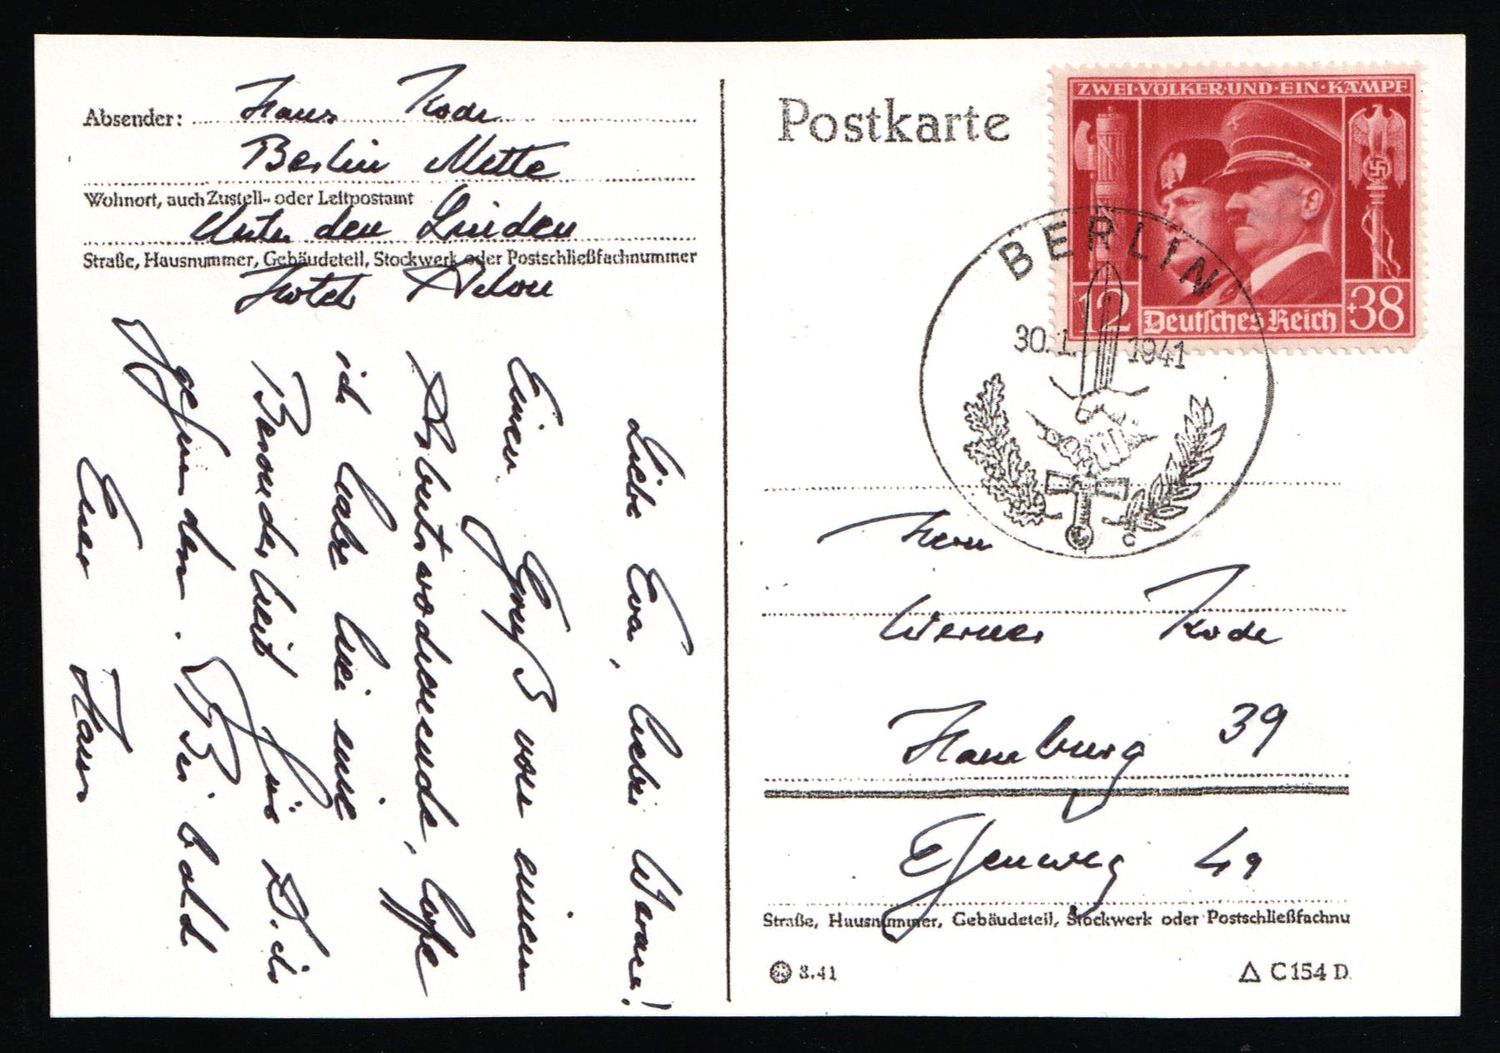 Absender: Hans Kode
Berlin Mitte
Wohnort, auch Zustell- oder Leitpostamt
Unter den Linden
Straße, Hausnummer, Gebäudeteil, Stockwerk oder Postschließfachnummer
Hotel Adlon
Liebe Eva, lieber Werner!
Einen Gruß von einem
Arbeitswochenende, hoffe
ich habe hier eine
Besonderheit für Dich
gefunden. Bis bald
Euer Hans
Postkarte
ZWEI·VÖLKER·UND·EIN·KAMPF
12 Deutsches Reich +38
BERLIN
30.1. 1941
c
Herrn
Werner Kode
Hamburg 39
49
Straße, Hausnummer, Gebäudeteil, Stockwerk oder Postschließfachnu
3.41
C 154 D